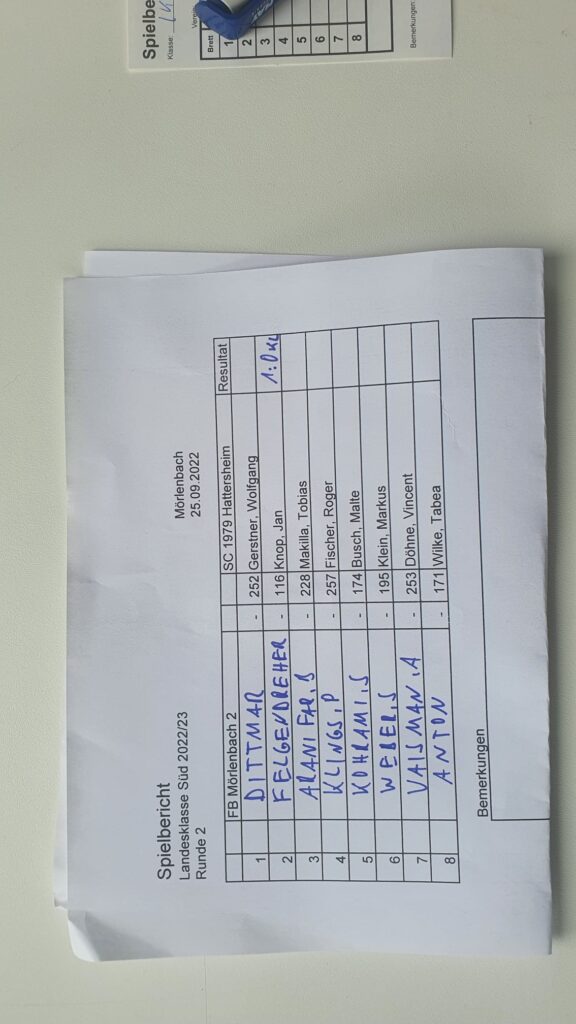 Spielbericht
Landesklasse Süd 2022/23 Mörlenbach
Runde 2 25.09.2022
FB Mörlenbach 2 SC 1979 Hattersheim Resultat
1 DITTMAR - 252 Gerstner, Wolfgang
2 FELGENDREHER - 116 Knop, Jan 1:0 KL
3 ARANI FAR, B - 228 Makilla, Tobias
4 KLINGS, P - 257 Fischer, Roger
5 KOHRAMI, S - 174 Busch, Malte
6 WEBER, S - 195 Klein, Markus
7 VAISMAN, A - 253 Döhne, Vincent
8 ANTON - 171 Wilke, Tabea
Bemerkungen
Spielbe
Klasse:
Verein
Brett
1
2
3
4
5
6
7
8
Bemerkungen: